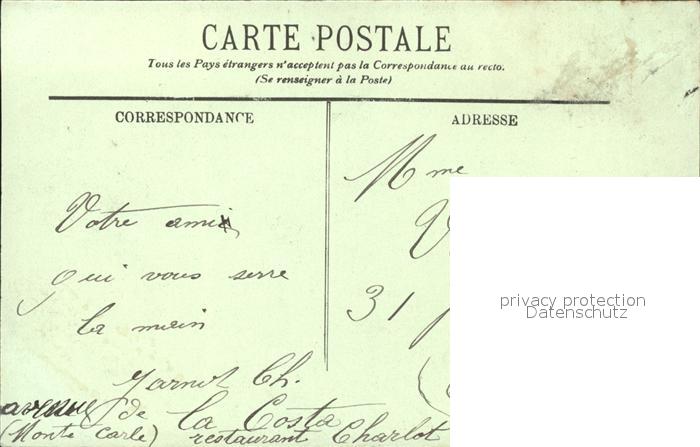 CARTE POSTALE
Tous les Pays étrangers n'acceptent pas la Correspondance au recto.
(Se renseigner à la Poste)
CORRESPONDANCE
ADRESSE
Mme
V
Votre ami
qui vous serre
la main
31
Ch.
avenue de la Costa
(Monte Carlo) restaurant Charlot
privacy protection
Datenschutz